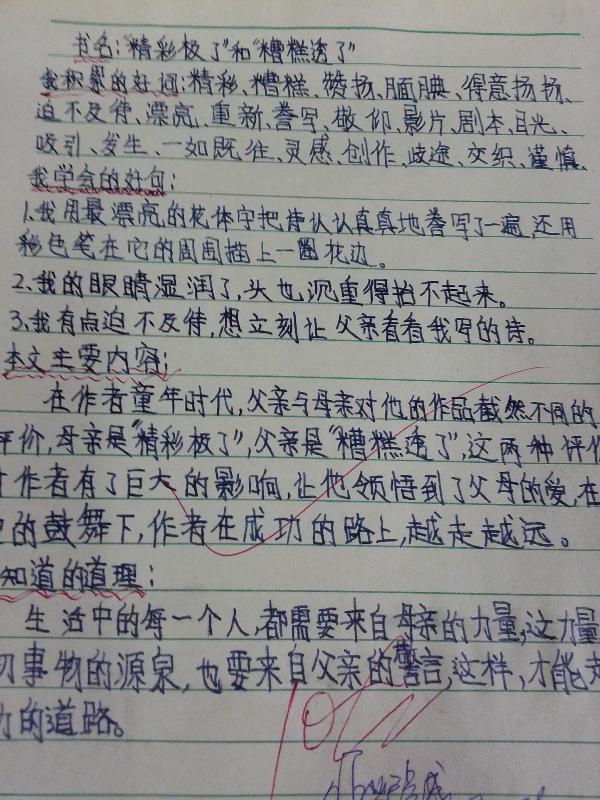 书名:“精彩极了”和“糟糕透了”
我积累的好词:精彩、糟糕、赞扬、腼腆、得意扬扬、
迫不及待、漂亮、重新、誊写、敬仰、影片、剧本、目光、
吸引、发生、一如既往、灵感、创作、歧途、交织、谨慎、
我学会的好句:
1.我用最漂亮的花体字把诗认认真真地誊写了一遍,还用
彩色笔在它的周围描上一圈花边。
2.我的眼睛湿润了,头也沉重得抬不起来。
3.我有点迫不及待,想立刻让父亲看看我写的诗。
本文主要内容:
在作者童年时代,父亲与母亲对他的作品截然不同的
评价,母亲是“精彩极了”,父亲是“糟糕透了”,这两种评价
对作者有了巨大的影响,让他领悟到了父母的爱,在
的鼓舞下,作者在成功的路上,越走越远。
知道的道理:
生活中的每一个人,都需要来自母亲的力量,这力量
切事物的源泉,也要来自父亲的警言,这样,才能
的道路。